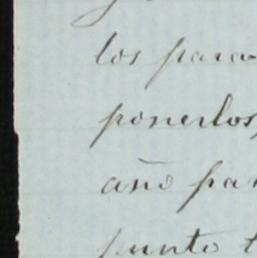 los para
ponerlos,
año par
punto t